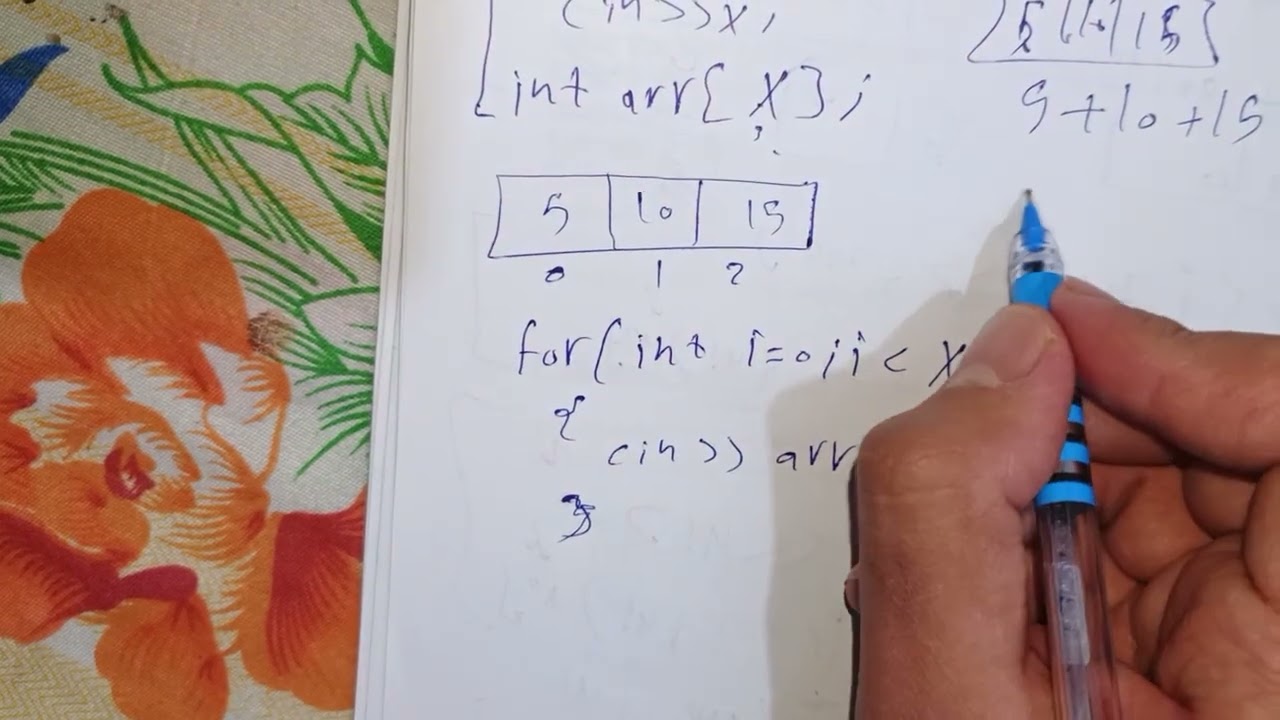 cin>>x;
int arr[X];
5 10 15
0 1 2
for(int i=0;i<X
{
cin>>arr
}
5 10 15
5+10+15